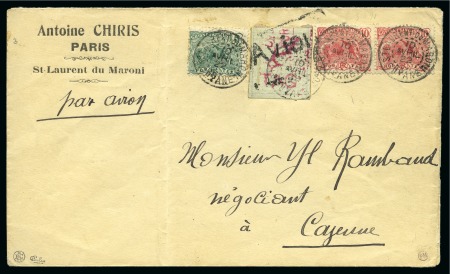 Antoine CHIRIS
PARIS
St-Laurent du Maroni
par avion
AVION
Monsieur Yl Rambaud
négociant
à
Cayenne